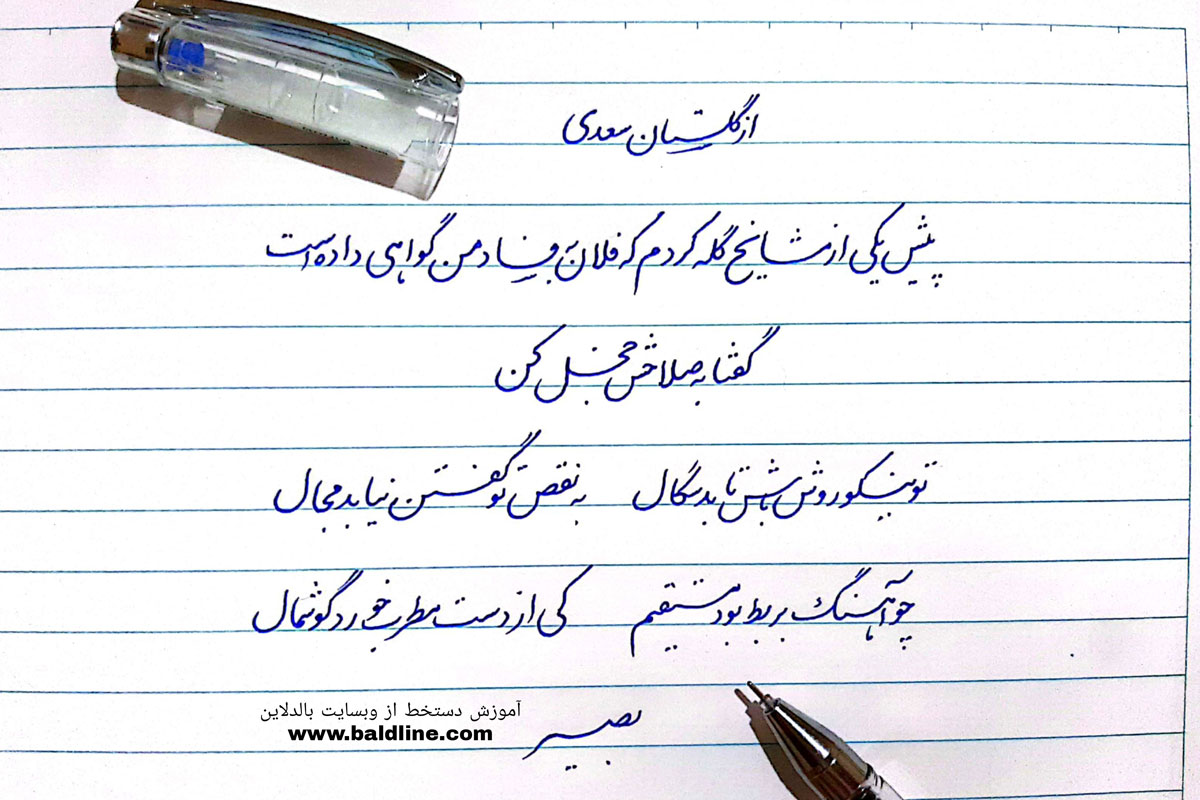 از گلستان سعدی
پیش یکی از مشایخ گله کردم که فلان به فساد من گواهی داده است
گفتا به صلاحش خجل کن
تو نیکو روش باش تا بدسگال به نقص تو گفتن نیابد مجال
چو آهنگ بربط بود مستقیم کی از دست مطرب خورد گوشمال
بصیر
آموزش دستخط از وبسایت بالدلاین
www.baldline.com